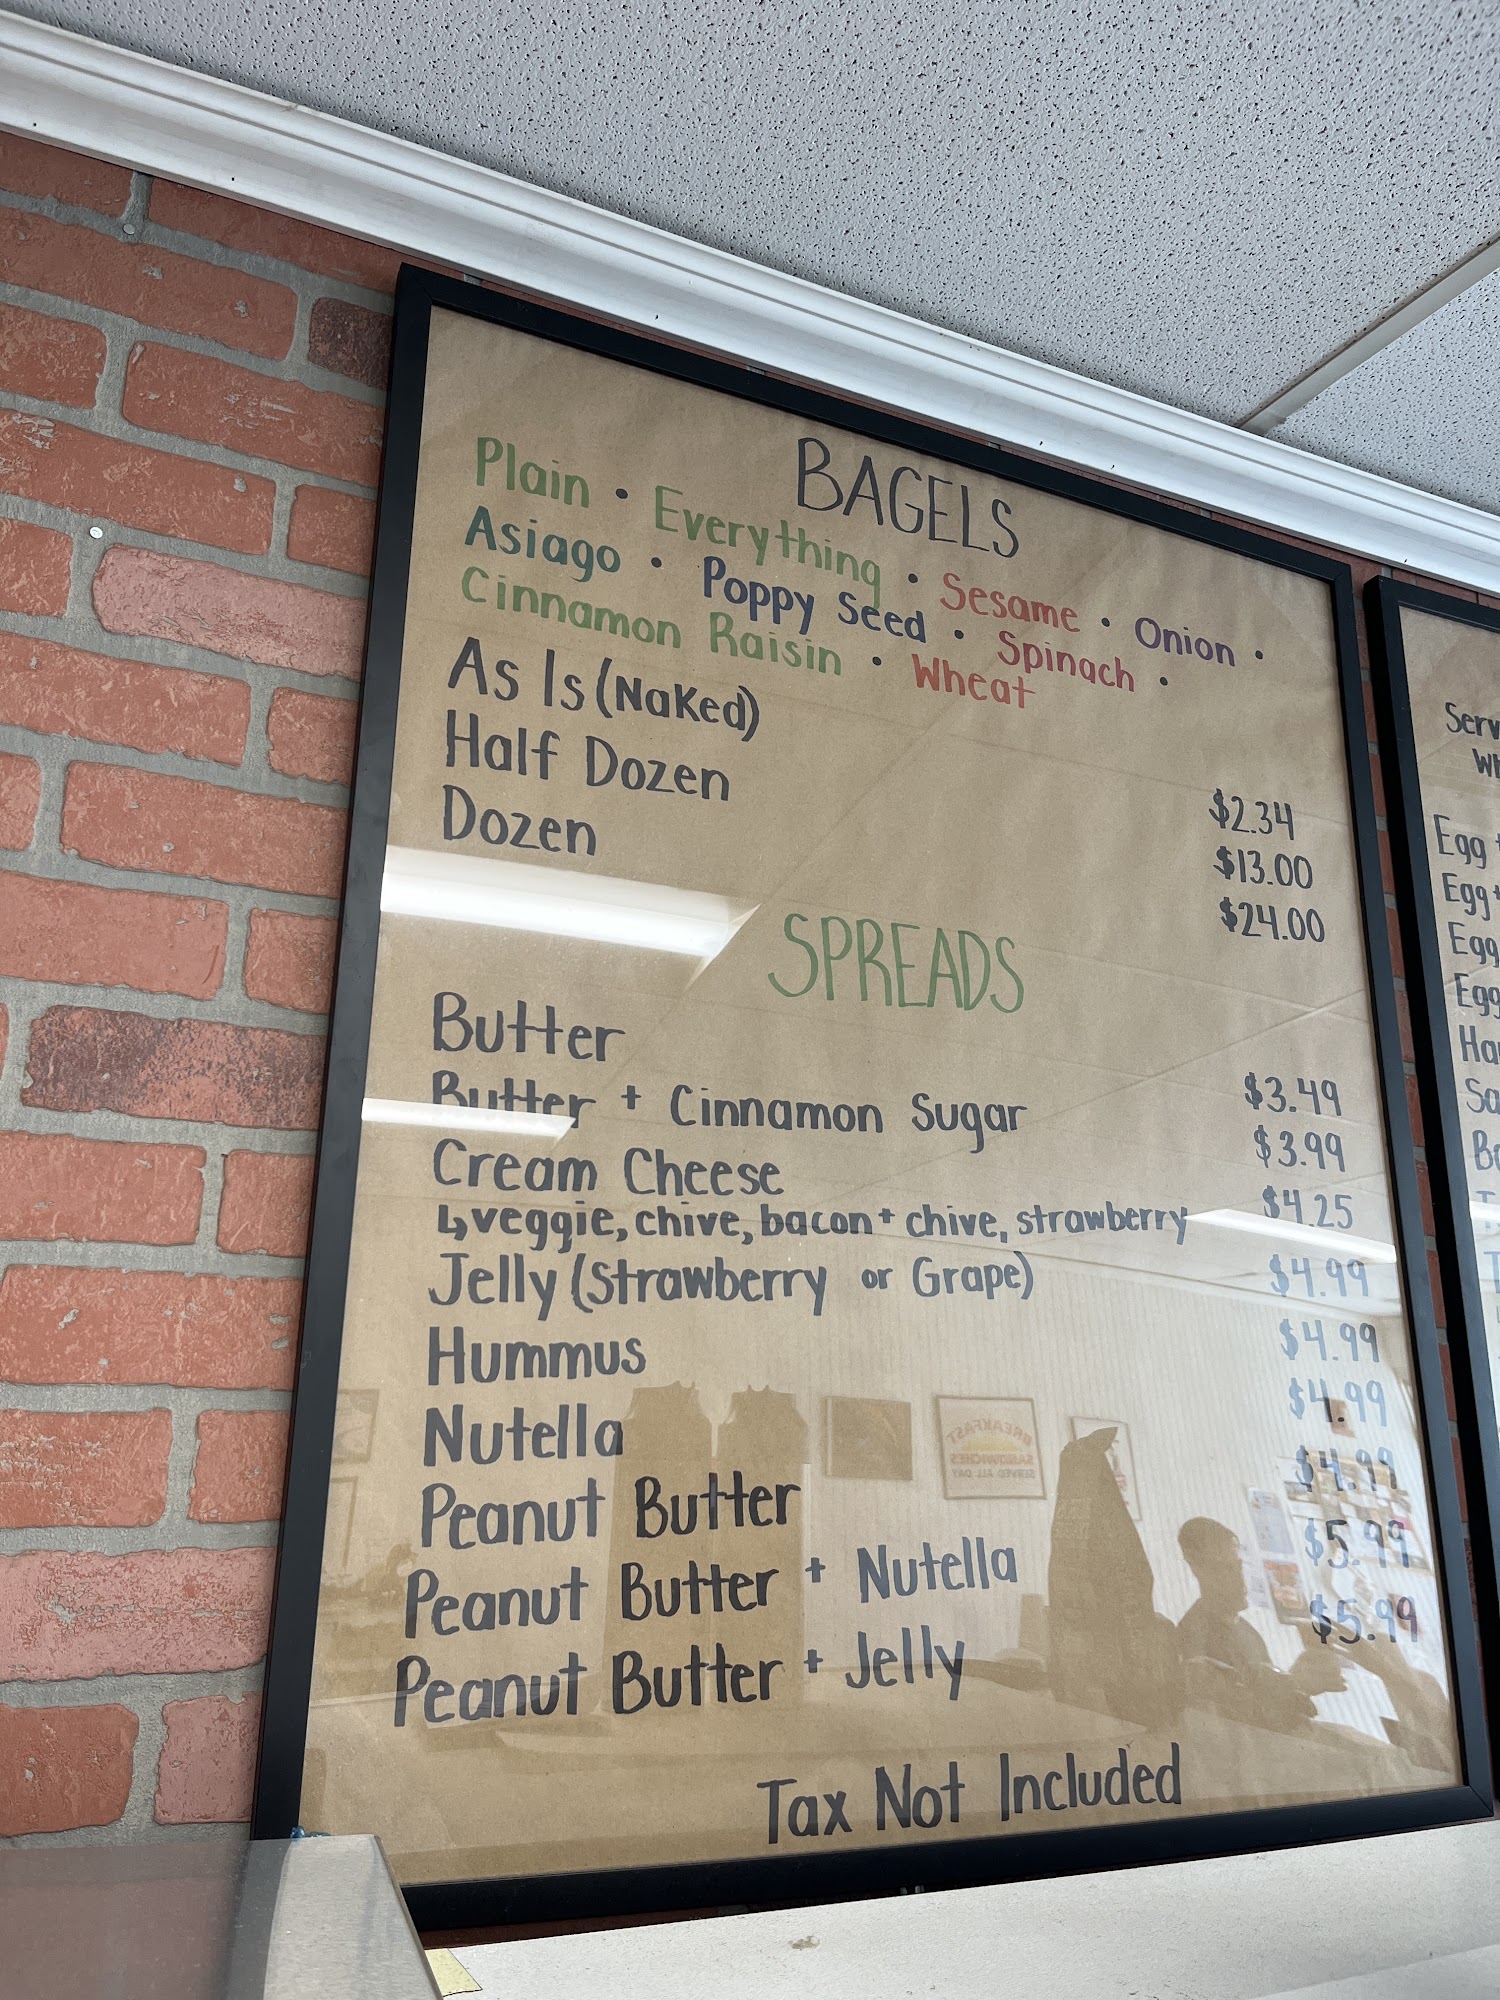 BAGELS
Plain • Everything • Sesame • Onion •
Asiago • Poppy Seed • Spinach •
Cinnamon Raisin • Wheat
As Is (Naked) $2.34
Half Dozen $13.00
Dozen $24.00
SPREADS
Butter $3.49
Butter + Cinnamon Sugar $3.99
Cream Cheese $4.25
↳veggie, chive, bacon + chive, strawberry
Jelly (Strawberry or Grape) $4.99
Hummus $4.99
Nutella $4.99
Peanut Butter $4.99
Peanut Butter + Nutella $5.99
Peanut Butter + Jelly $5.99
Tax Not Included
Egg
Egg +
Egg
Egg